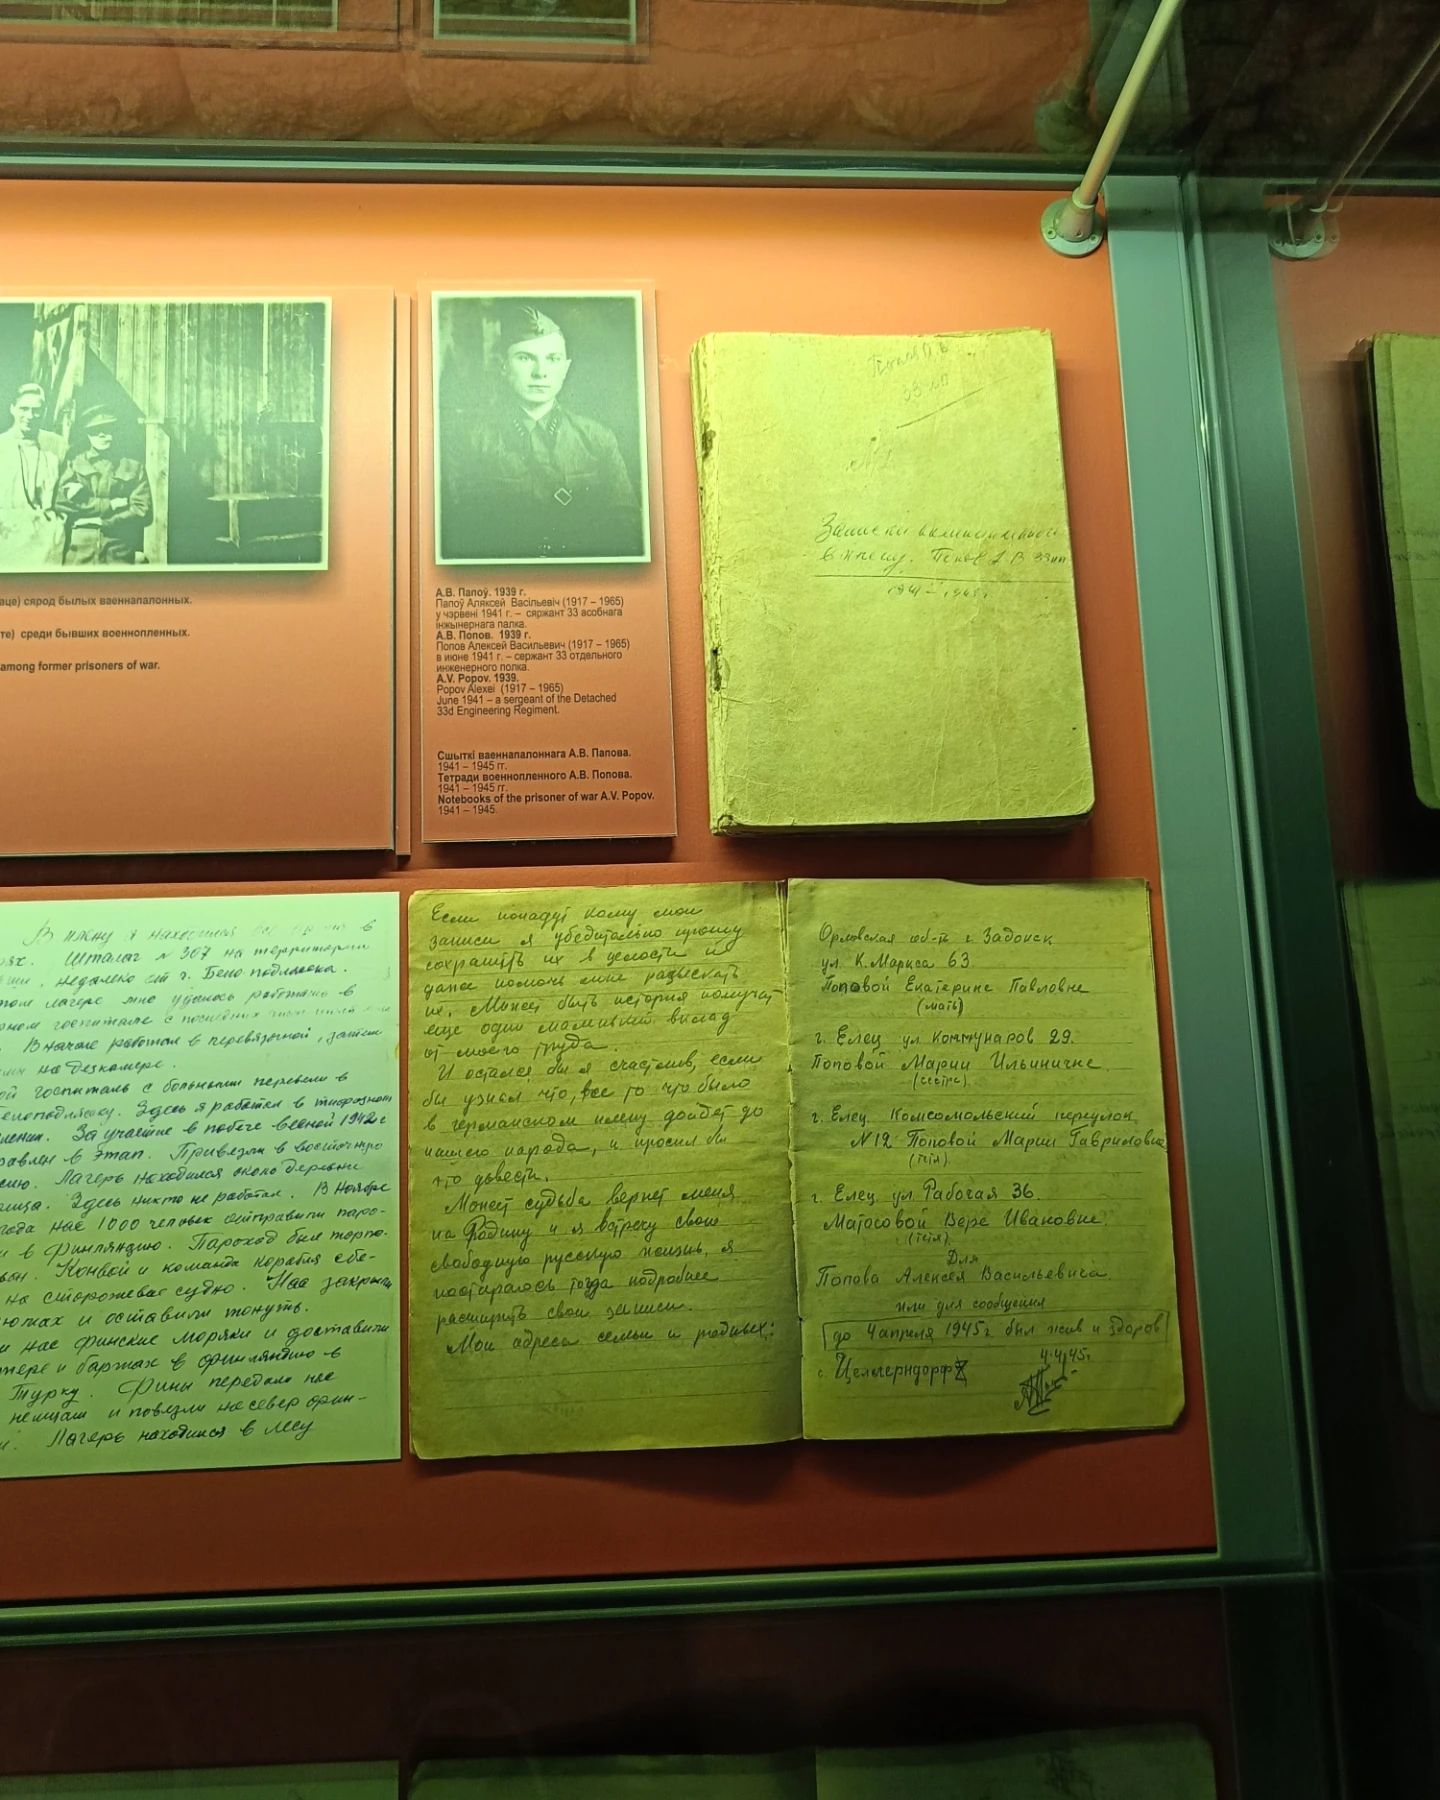 аце) сярод былых ваеннапалонных.
те) среди бывших военнопленных.
among former prisoners of war.
А.В. Папоў. 1939 г.
Папоў Аляксей Васільевіч (1917 – 1965)
у чэрвені 1941 г. – сяржант 33 асобнага
інжынернага палка.
А.В. Попов. 1939 г.
Попов Алексей Васильевич (1917 – 1965)
в июне 1941 г. – сержант 33 отдельного
инженерного полка.
A.V. Popov. 1939.
Popov Alexei (1917 – 1965)
June 1941 – a sergeant of the Detached
33d Engineering Regiment.
Сшыткі ваеннапалоннага А.В. Папова.
1941 – 1945 гг.
Тетради военнопленного А.В. Попова.
1941 – 1945 гг.
Notebooks of the prisoner of war A.V. Popov.
1941 – 1945.
Записки
в плену. Попов А В 33ип
1941 – 1945 г.
В плену я находился в
рях. Шталаг N 367 на территории
недалеко от г. Бело подляска.
том лагере мне удалось работать в
рном госпитале с последних чисел
. Вначале работал в перевязочной, затем
на дезкамере.
ой госпиталь с больными перевели в
елоподляску. Здесь я работал в тифозном
лении. За участие в побеге весной 1942 г
равлен в этап. Привезли в восточную
сию. Лагерь находился около деревни
Здесь никто не работал. В ноябре
года нас 1000 человек отправили паро-
и в Финляндию. Пароход был торпе-
ван. Конвой и команда корабля сбе-
на сторожевое судно. Нас закрыли
рюмах и оставили тонуть.
и нас финские моряки и доставили
тере и баржах в Финляндию в
Турку. Фины передали нас
немцам и повезли на север фин-
и. Лагерь находился в лесу
Если попадут кому мои
записи я убедительно прошу
сохранить их в целости и
далее помочь мне разыскать
их. Может быть история получит
еще один маленький вклад
от моего труда.
И остался бы я счастлив, если
бы узнал что, все то что было
в германском плену дойдет до
нашего народа, и просил бы
это довести.
Может судьба вернет меня
на Родину и я встречу свою
свободную русскую жизнь, я
постараюсь тогда подробнее
расширить свои записи.
Мои адреса семьи и родных:
Орловская об-ть г Задонск
ул. К. Маркса 63.
Поповой Екатерине Павловне
(мать)
г. Елец ул Коммунаров 29.
Поповой Марии Ильиничне.
(сестра).
г. Елец. Комсомольский переулок
N 12 Поповой Марии Гавриловне
(тётя).
г. Елец ул. Рабочая 36.
Матосовой Вере Ивановне.
(тётя).
Для
Попова Алексея Васильевича.
или для сообщения
до 4 апреля 1945 г был жив и здоров
4.4.45 г.
с. Цельгерндорф